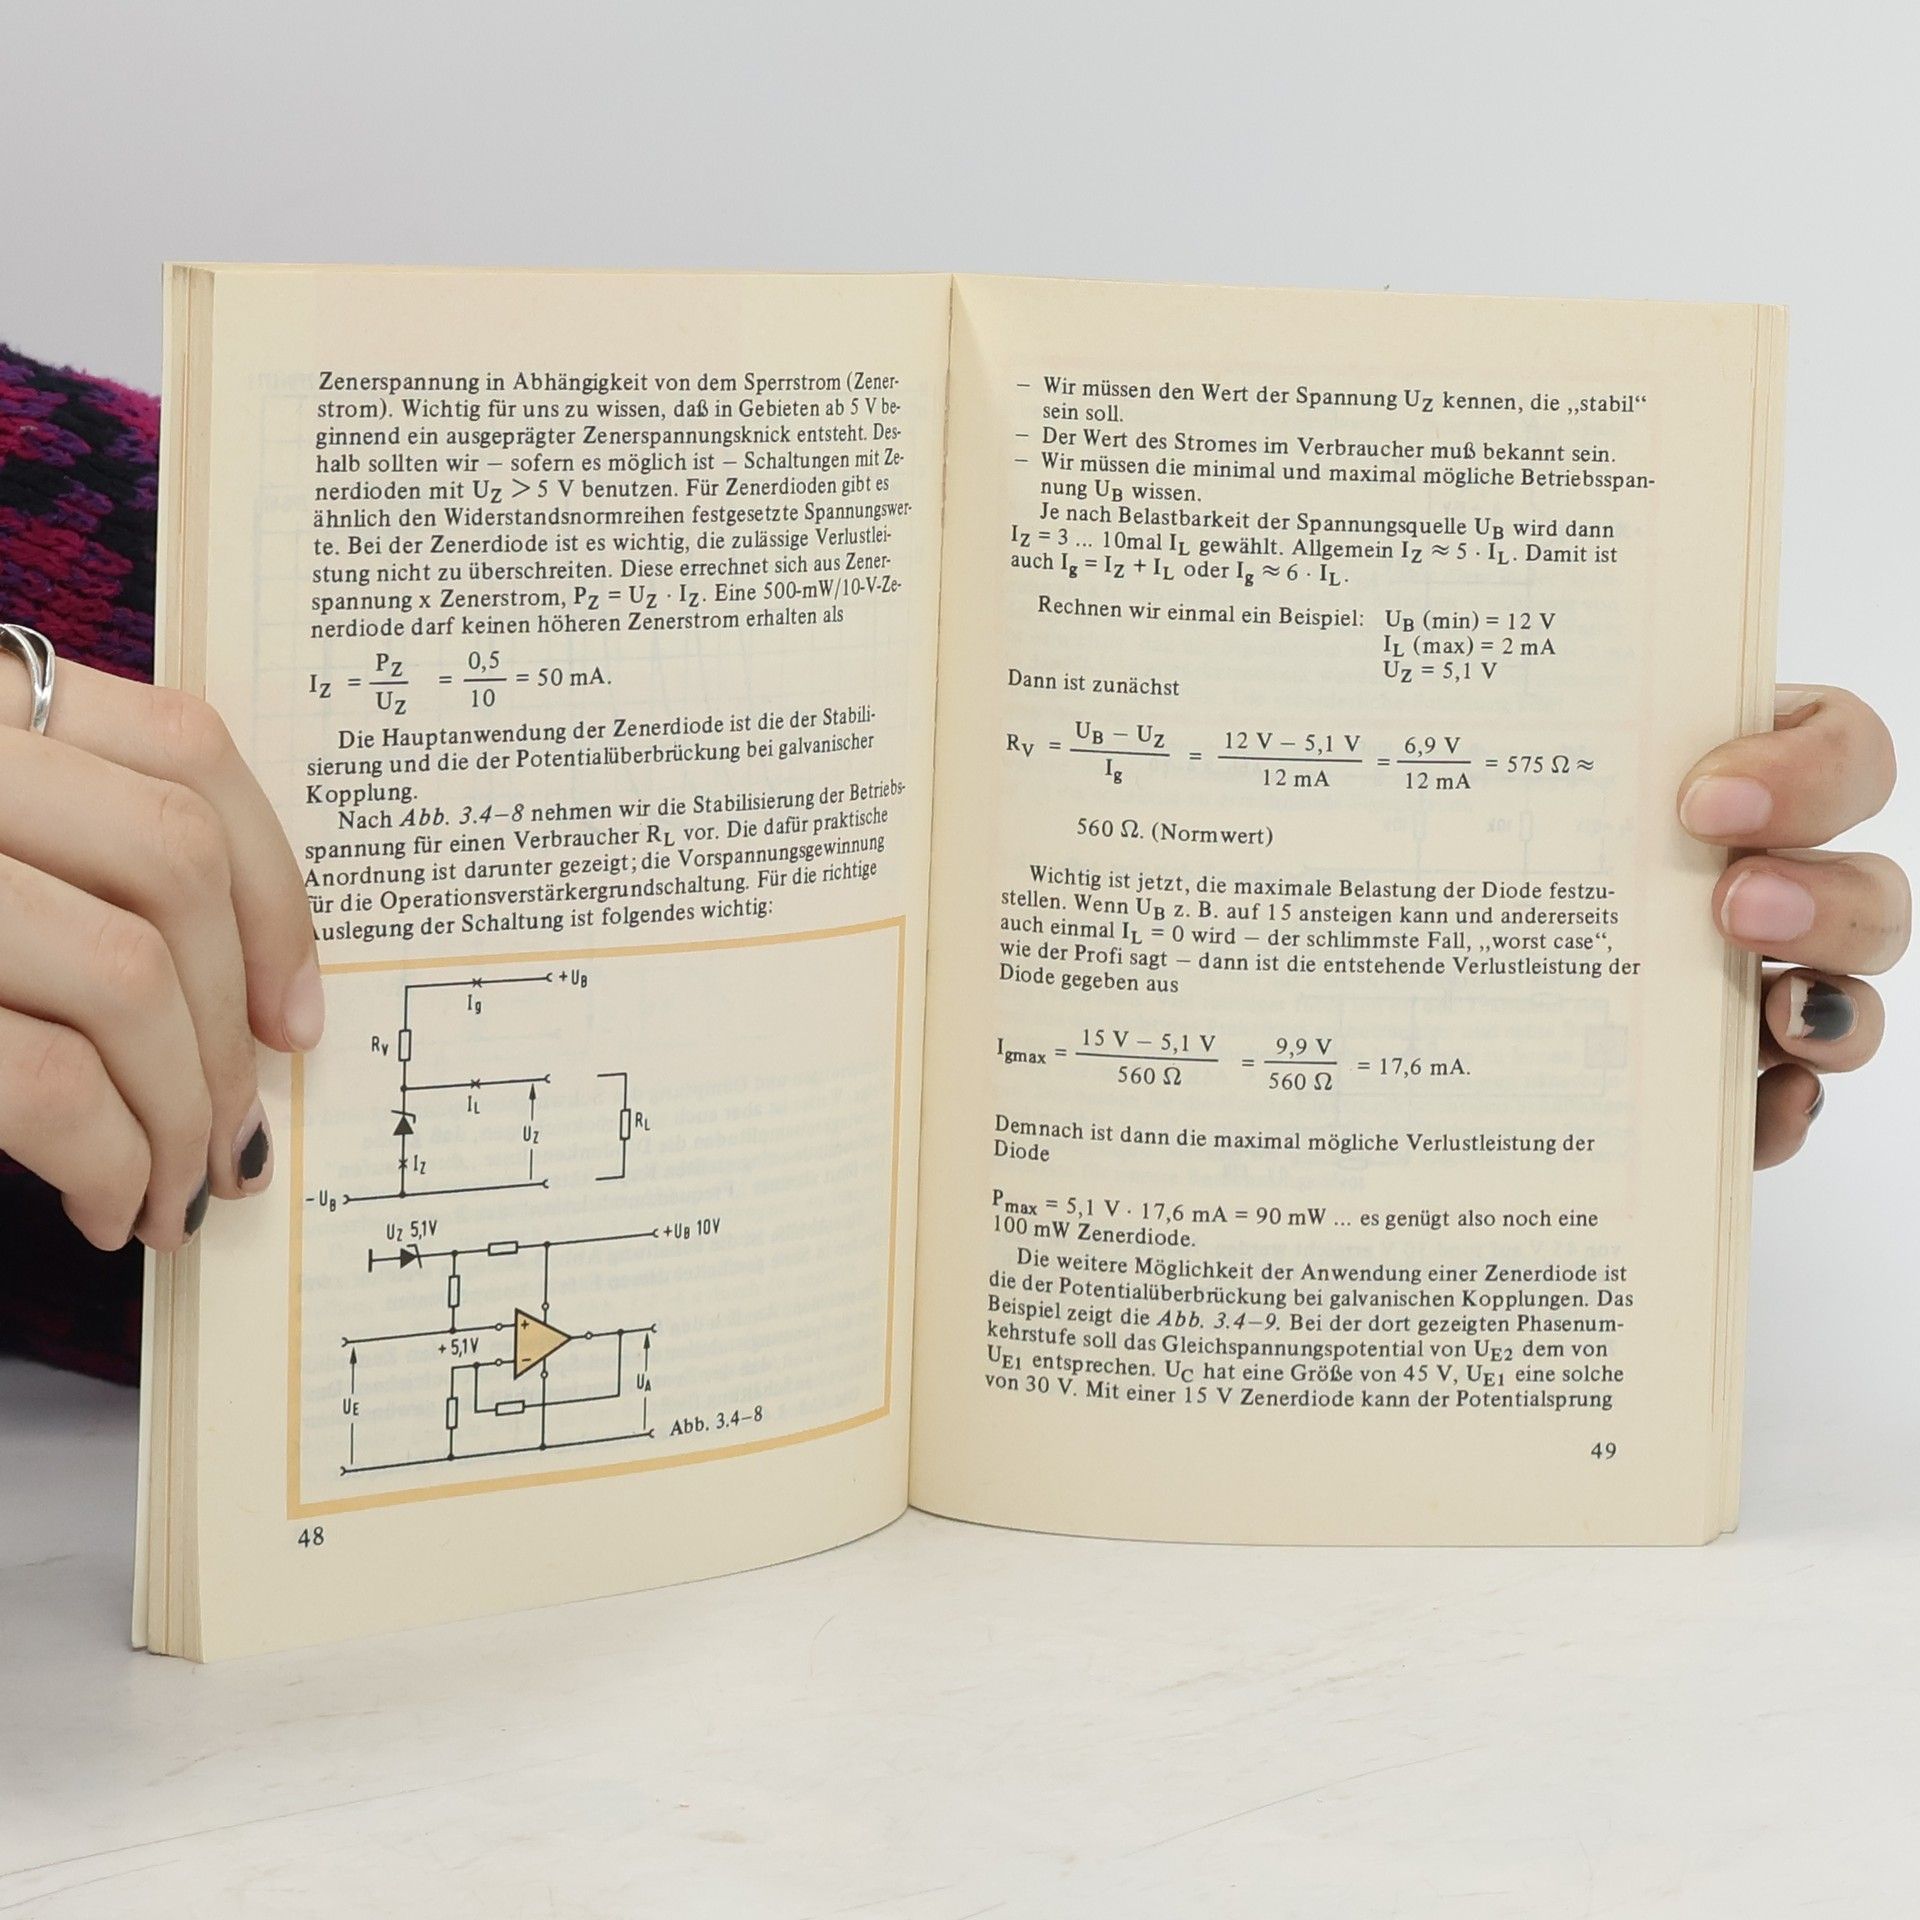 Zenerspannung in Abhängigkeit von dem Sperrstrom (Zener-
strom). Wichtig für uns zu wissen, daß in Gebieten ab 5 V be-
ginnend ein ausgeprägter Zenerspannungsknick entsteht. Des-
halb sollten wir – sofern es möglich ist – Schaltungen mit Ze-
nerdioden mit UZ > 5 V benutzen. Für Zenerdioden gibt es
ähnlich den Widerstandsnormreihen festgesetzte Spannungswer-
te. Bei der Zenerdiode ist es wichtig, die zulässige Verlustlei-
stung nicht zu überschreiten. Diese errechnet sich aus Zener-
spannung x Zenerstrom, PZ = UZ · IZ. Eine 500-mW/10-V-Ze-
nerdiode darf keinen höheren Zenerstrom erhalten als
IZ = PZ / UZ = 0,5 / 10 = 50 mA.
Die Hauptanwendung der Zenerdiode ist die der Stabili-
sierung und die der Potentialüberbrückung bei galvanischer
Kopplung.
Nach Abb. 3.4–8 nehmen wir die Stabilisierung der Betriebs-
spannung für einen Verbraucher RL vor. Die dafür praktische
Anordnung ist darunter gezeigt; die Vorspannungsgewinnung
für die Operationsverstärkergrundschaltung. Für die richtige
Auslegung der Schaltung ist folgendes wichtig:
+UB
Ig
RV
IL
UZ
RL
IZ
-UB
UZ 5,1V
+UB 10V
+
+5,1V
–
UE
UA
Abb. 3.4–8
48
– Wir müssen den Wert der Spannung UZ kennen, die „stabil“
sein soll.
– Der Wert des Stromes im Verbraucher muß bekannt sein.
– Wir müssen die minimal und maximal mögliche Betriebsspan-
nung UB wissen.
Je nach Belastbarkeit der Spannungsquelle UB wird dann
IZ = 3 ... 10mal IL gewählt. Allgemein IZ ≈ 5 · IL. Damit ist
auch Ig = IZ + IL oder Ig ≈ 6 · IL.
Rechnen wir einmal ein Beispiel: UB (min) = 12 V
IL (max) = 2 mA
UZ = 5,1 V
Dann ist zunächst
RV = UB – UZ / Ig = 12 V – 5,1 V / 12 mA = 6,9 V / 12 mA = 575 Ω ≈
560 Ω. (Normwert)
Wichtig ist jetzt, die maximale Belastung der Diode festzu-
stellen. Wenn UB z. B. auf 15 ansteigen kann und andererseits
auch einmal IL = 0 wird – der schlimmste Fall, „worst case“,
wie der Profi sagt – dann ist die entstehende Verlustleistung der
Diode gegeben aus
Igmax = 15 V – 5,1 V / 560 Ω = 9,9 V / 560 Ω = 17,6 mA.
Demnach ist dann die maximal mögliche Verlustleistung der
Diode
Pmax = 5,1 V · 17,6 mA = 90 mW ... es genügt also noch eine
100 mW Zenerdiode.
Die weitere Möglichkeit der Anwendung einer Zenerdiode ist
die der Potentialüberbrückung bei galvanischen Kopplungen. Das
Beispiel zeigt die Abb. 3.4–9. Bei der dort gezeigten Phasenum-
kehrstufe soll das Gleichspannungspotential von UE2 dem von
UE1 entsprechen. UC hat eine Größe von 45 V, UE1 eine solche
von 30 V. Mit einer 15 V Zenerdiode kann der Potentialsprung
49